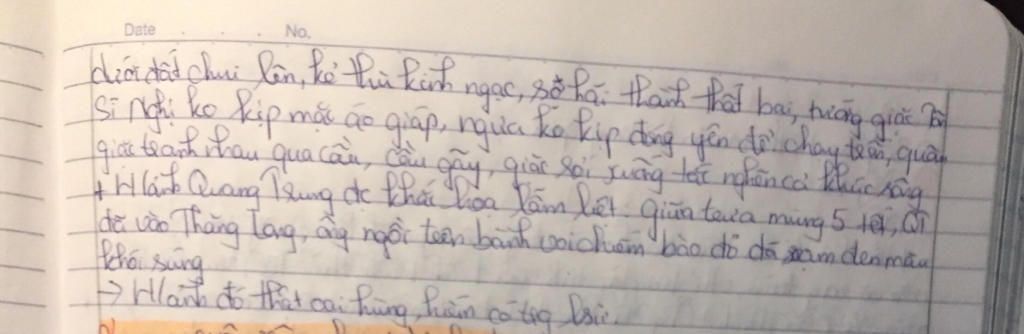 Date No.
dưới đất chui lên, kẻ thù kinh ngạc, sợ hãi thành thất bại, tướng giặc Tôn
Sĩ Nghị ko kịp mặc áo giáp, ngựa ko kịp đóng yên để chạy trốn, quân
giặc tranh nhau qua cầu, cầu gãy, giặc rơi xuống tắc nghẽn cả khúc sông
+ H/ảnh Quang Trung đc khắc họa lẫm liệt. Giữa trưa mùng 5 tết, QT
đã vào Thăng Long, ông ngồi trên bành voi chiếm bào đỏ đã sạm đen màu
khói súng
→ H/ảnh đó thật oai hùng, hiếm có trg lsử.